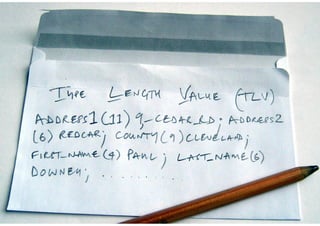 TYPE LENGTH VALUE (TLV)
ADDRESS1(11) 9_CEDAR_RD; ADDRESS2
(6) REDCAR; COUNTY(9)CLEVELAND;
FIRST_NAME(4) PAUL; LAST_NAME(6)
DOWNEY; ..........